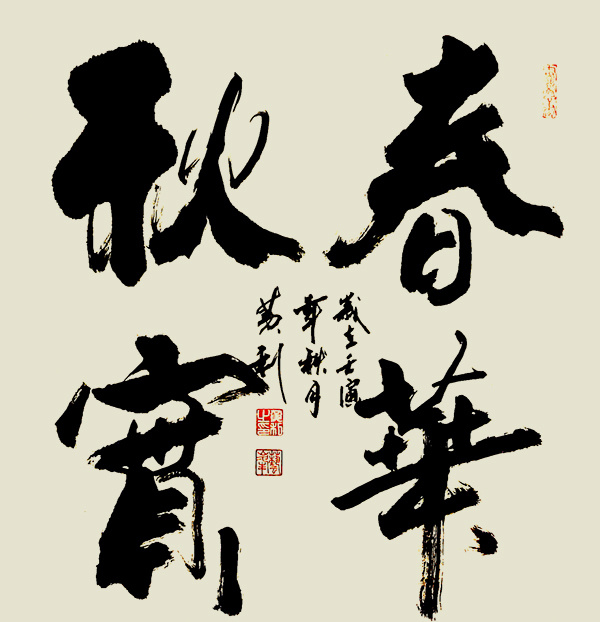 春華
秋實
歲在壬寅
年秋月
黄利